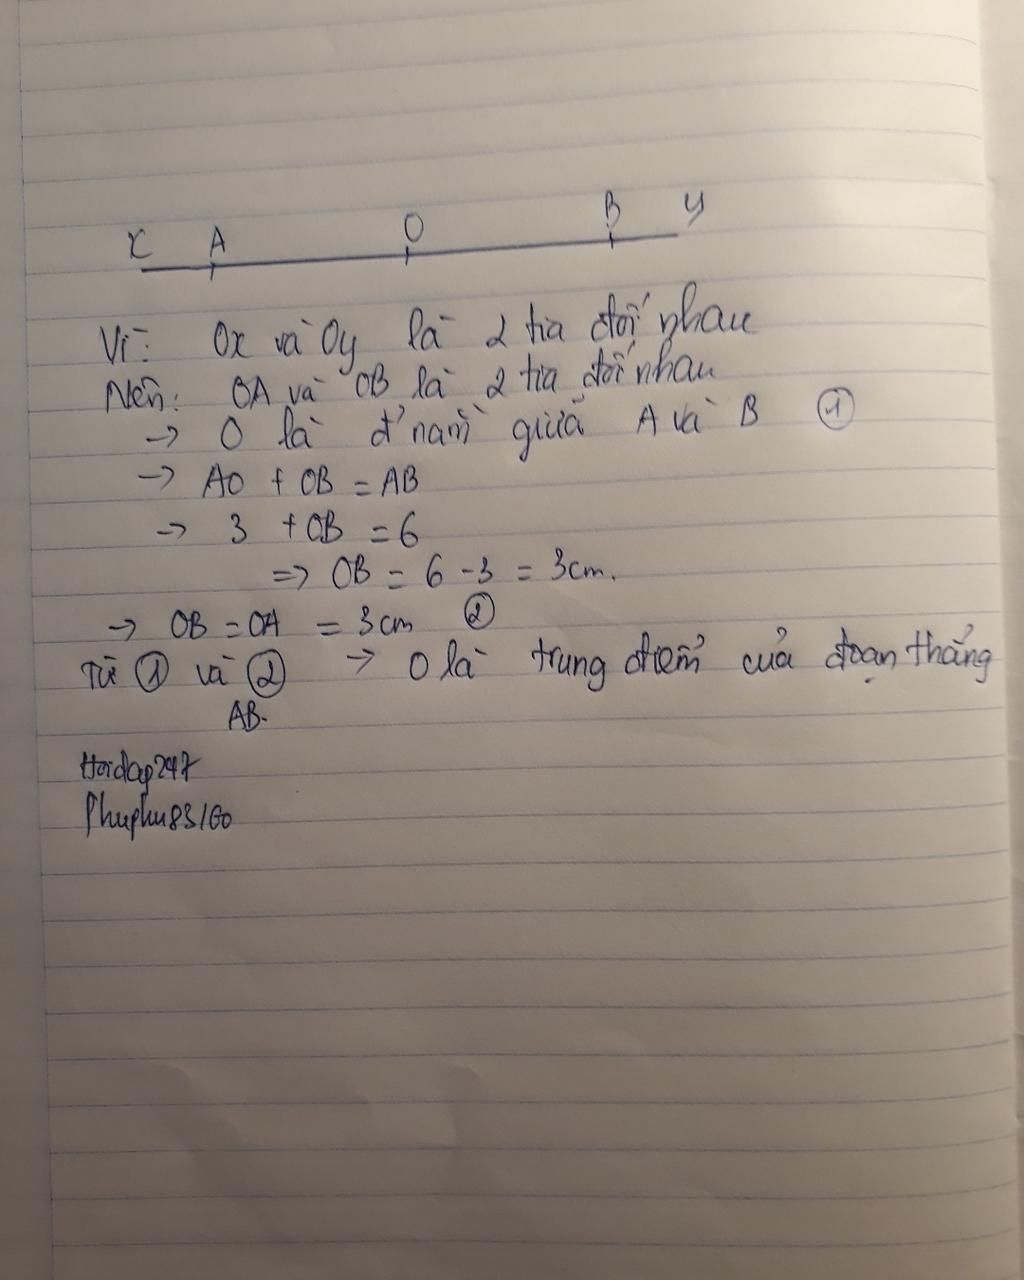 x A O B y
Vì: Ox và Oy là 2 tia đối nhau
Nên: OA và OB là 2 tia đối nhau
→ O là đ' nằm giữa A và B ①
→ AO + OB = AB
→ 3 + OB = 6
=> OB = 6 - 3 = 3cm.
→ OB = OA = 3cm ②
Từ ① và ② → O là trung điểm của đoạn thẳng
AB.
Hoidap247